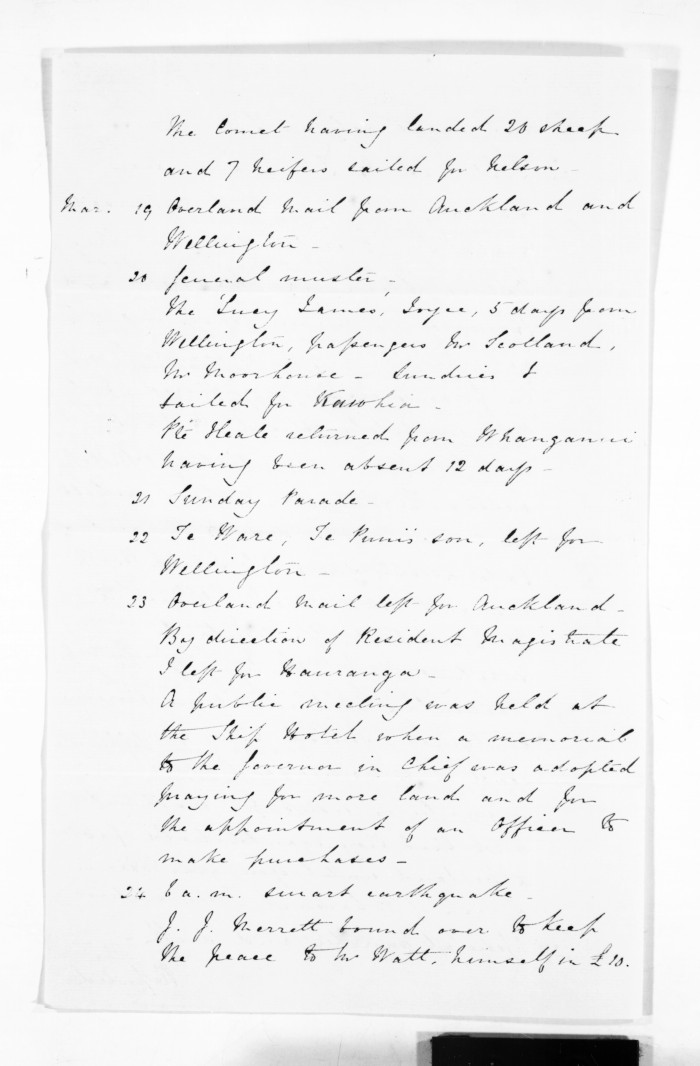 The Comet having landed 20 sheep
and 7 heifers sailed for Nelson -
Mar. 19 Overland Mail from Auckland and
Wellington -
20 General muster -
The 'Lucy James', Joyce, 5 days from
Wellington, passengers Mr Scotland,
Mr Moorhouse - Sundries &
sailed for Kawhia -
Pte Heale returned from Whanganui
having been absent 12 days -
21 Sunday Parade -
22 Te Ware, Te Puni's son, left for
Wellington -
23 Overland Mail left for Auckland -
By direction of Resident Magistrate
I left for Hauranga -
A public meeting was held at
the Ship Hotel when a memorial
to the Governor in Chief was adopted
praying for more land and for
the appointment of an Officer to
make purchases -
24 6 a.m. smart earthquake -
J. J. Merrett bound over to keep
the peace to Mr Watt, himself in £10.